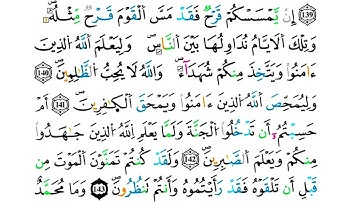 ﴿139﴾ إِن يَمْسَسْكُمْ قَرْحٌ فَقَدْ مَسَّ ٱلْقَوْمَ قَرْحٌ مِّثْلُهُۥ ۚ
وَتِلْكَ ٱلْأَيَّامُ نُدَاوِلُهَا بَيْنَ ٱلنَّاسِ وَلِيَعْلَمَ ٱللَّهُ ٱلَّذِينَ
ءَامَنُوا۟ وَيَتَّخِذَ مِنكُمْ شُهَدَآءَ ۗ وَٱللَّهُ لَا يُحِبُّ ٱلظَّـٰلِمِينَ ﴿140﴾
وَلِيُمَحِّصَ ٱللَّهُ ٱلَّذِينَ ءَامَنُوا۟ وَيَمْحَقَ ٱلْكَـٰفِرِينَ ﴿141﴾ أَمْ
حَسِبْتُمْ أَن تَدْخُلُوا۟ ٱلْجَنَّةَ وَلَمَّا يَعْلَمِ ٱللَّهُ ٱلَّذِينَ جَـٰهَدُوا۟
مِنكُمْ وَيَعْلَمَ ٱلصَّـٰبِرِينَ ﴿142﴾ وَلَقَدْ كُنتُمْ تَمَنَّوْنَ ٱلْمَوْتَ مِن
قَبْلِ أَن تَلْقَوْهُ فَقَدْ رَأَيْتُمُوهُ وَأَنتُمْ تَنظُرُونَ ﴿143﴾ وَمَا مُحَمَّدٌ